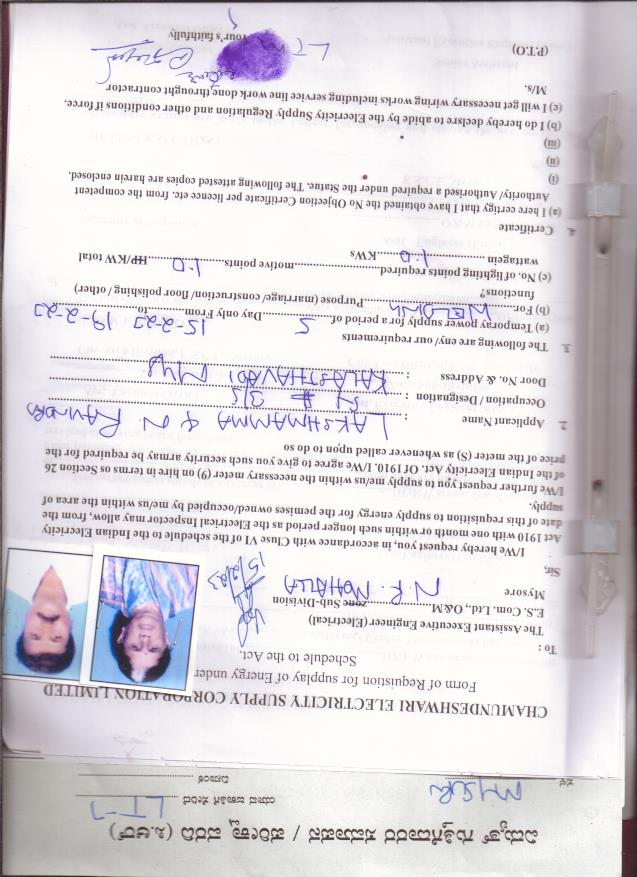 CHAMUNDESHWARI ELECTRICITY SUPPLY CORPORATION LIMITED
Form of Requistion for supplay of Energy under
Schedule to the Act.
To :
The Assistant Executive Engineer (Electrical)
E.S. Com. Ltd., O&M. N.R. MOHALLA zone Sub-Division
Mysore
15/2/23
Sir,
I/We hereby request you, in accordance with Cluse VI of the schedule to the Indian Eletricity
Act 1910 with one month or within such longer period as the Electrical Inspector may allow, from the
date of this requisition to supply energy for the pemises owned/occupied by me/us within the area of
supply.
I/We further request you to supply me/us within the necessary meter (9) on hire in terms os Section 26
of the Indian Elecricity Act. Of 1910. I/We agree to give you such security armay be required for the
price of the meter (S) as whenever called upon to do so
2. Applicant Name : LAKSHMAMMA & N RAVINDRA
Occupation / Designation : # 3/5
Door No. & Address : KALASTHAVADI MYS
3. The following are eny/ our requirements
(a) Temporay power supply for a period of 5 Day only From 15-2-23 to 19-2-23
(b) For WELDING Purpose (marriage/ construction/ floor polishing / other)
functions?
(c) No. of lighting points required motive points 1.0 HP/KW total
wattagein 1.0 KWs
4. Certificate
(a) I here certigy that I have obtained the No Objection Certificate per licence etc. from the competent
Authority/ Authorised a required under the Statue. The following attested copies are harein enclosed.
(i)
(ii)
(iii)
(b) I do hereby declsre to abide by the Elecricity Supply Regulation and other conditions if force.
(c) I will get necessary wiring works including service line work done throught contractor
M/s.
Your's faithfully
LTM
(P.T.O)
LT-7